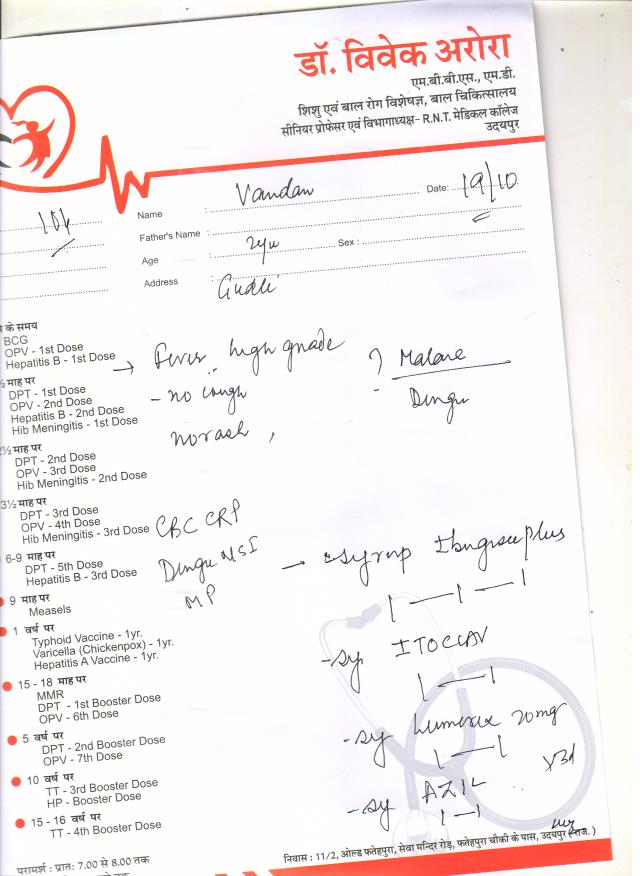 डॉ. विवेक अरोरा
एम.बी.बी.एस., एम.डी.
शिशु एवं बाल रोग विशेषज्ञ, बाल चिकित्सालय
सीनियर प्रोफेसर एवं विभागाध्यक्ष- R.N.T. मेडिकल कॉलेज
उदयपुर
Name : Vandan Date: 19/10
Father's Name :
Age : Sex :
Address :
के समय
BCG
OPV - 1st Dose
Hepatitis B - 1st Dose
→ Fever high grade
? Malare
½ माह पर
DPT - 1st Dose
OPV - 2nd Dose
Hepatitis B - 2nd Dose
Hib Meningitis - 1st Dose
- no cough
no rash,
Dengu
2½ माह पर
DPT - 2nd Dose
OPV - 3rd Dose
Hib Meningitis - 2nd Dose
3½ माह पर
DPT - 3rd Dose
OPV - 4th Dose
Hib Meningitis - 3rd Dose
CBC CRP
6-9 माह पर
DPT - 5th Dose
Hepatitis B - 3rd Dose
Dengu NSI
MP
→ syrup Ibugesic plus
1 — 1 — 1
9 माह पर
Measels
1 वर्ष पर
Typhoid Vaccine - 1yr.
Varicella (Chickenpox) - 1yr.
Hepatitis A Vaccine - 1yr.
- sy ITOCLAV
1 — 1
15 - 18 माह पर
MMR
DPT - 1st Booster Dose
OPV - 6th Dose
- sy Lumerax 20mg
1 — 1 x3d
5 वर्ष पर
DPT - 2nd Booster Dose
OPV - 7th Dose
10 वर्ष पर
TT - 3rd Booster Dose
HP - Booster Dose
- sy AZIL
1 — 1
15 - 16 वर्ष पर
TT - 4th Booster Dose
परामर्श : प्रातः 7.00 से 8.00 तक
निवास : 11/2, ओल्ड फतेहपुरा, सेवा मन्दिर रोड़, फतेहपुरा चौकी के पास, उदयपुर (राज.)